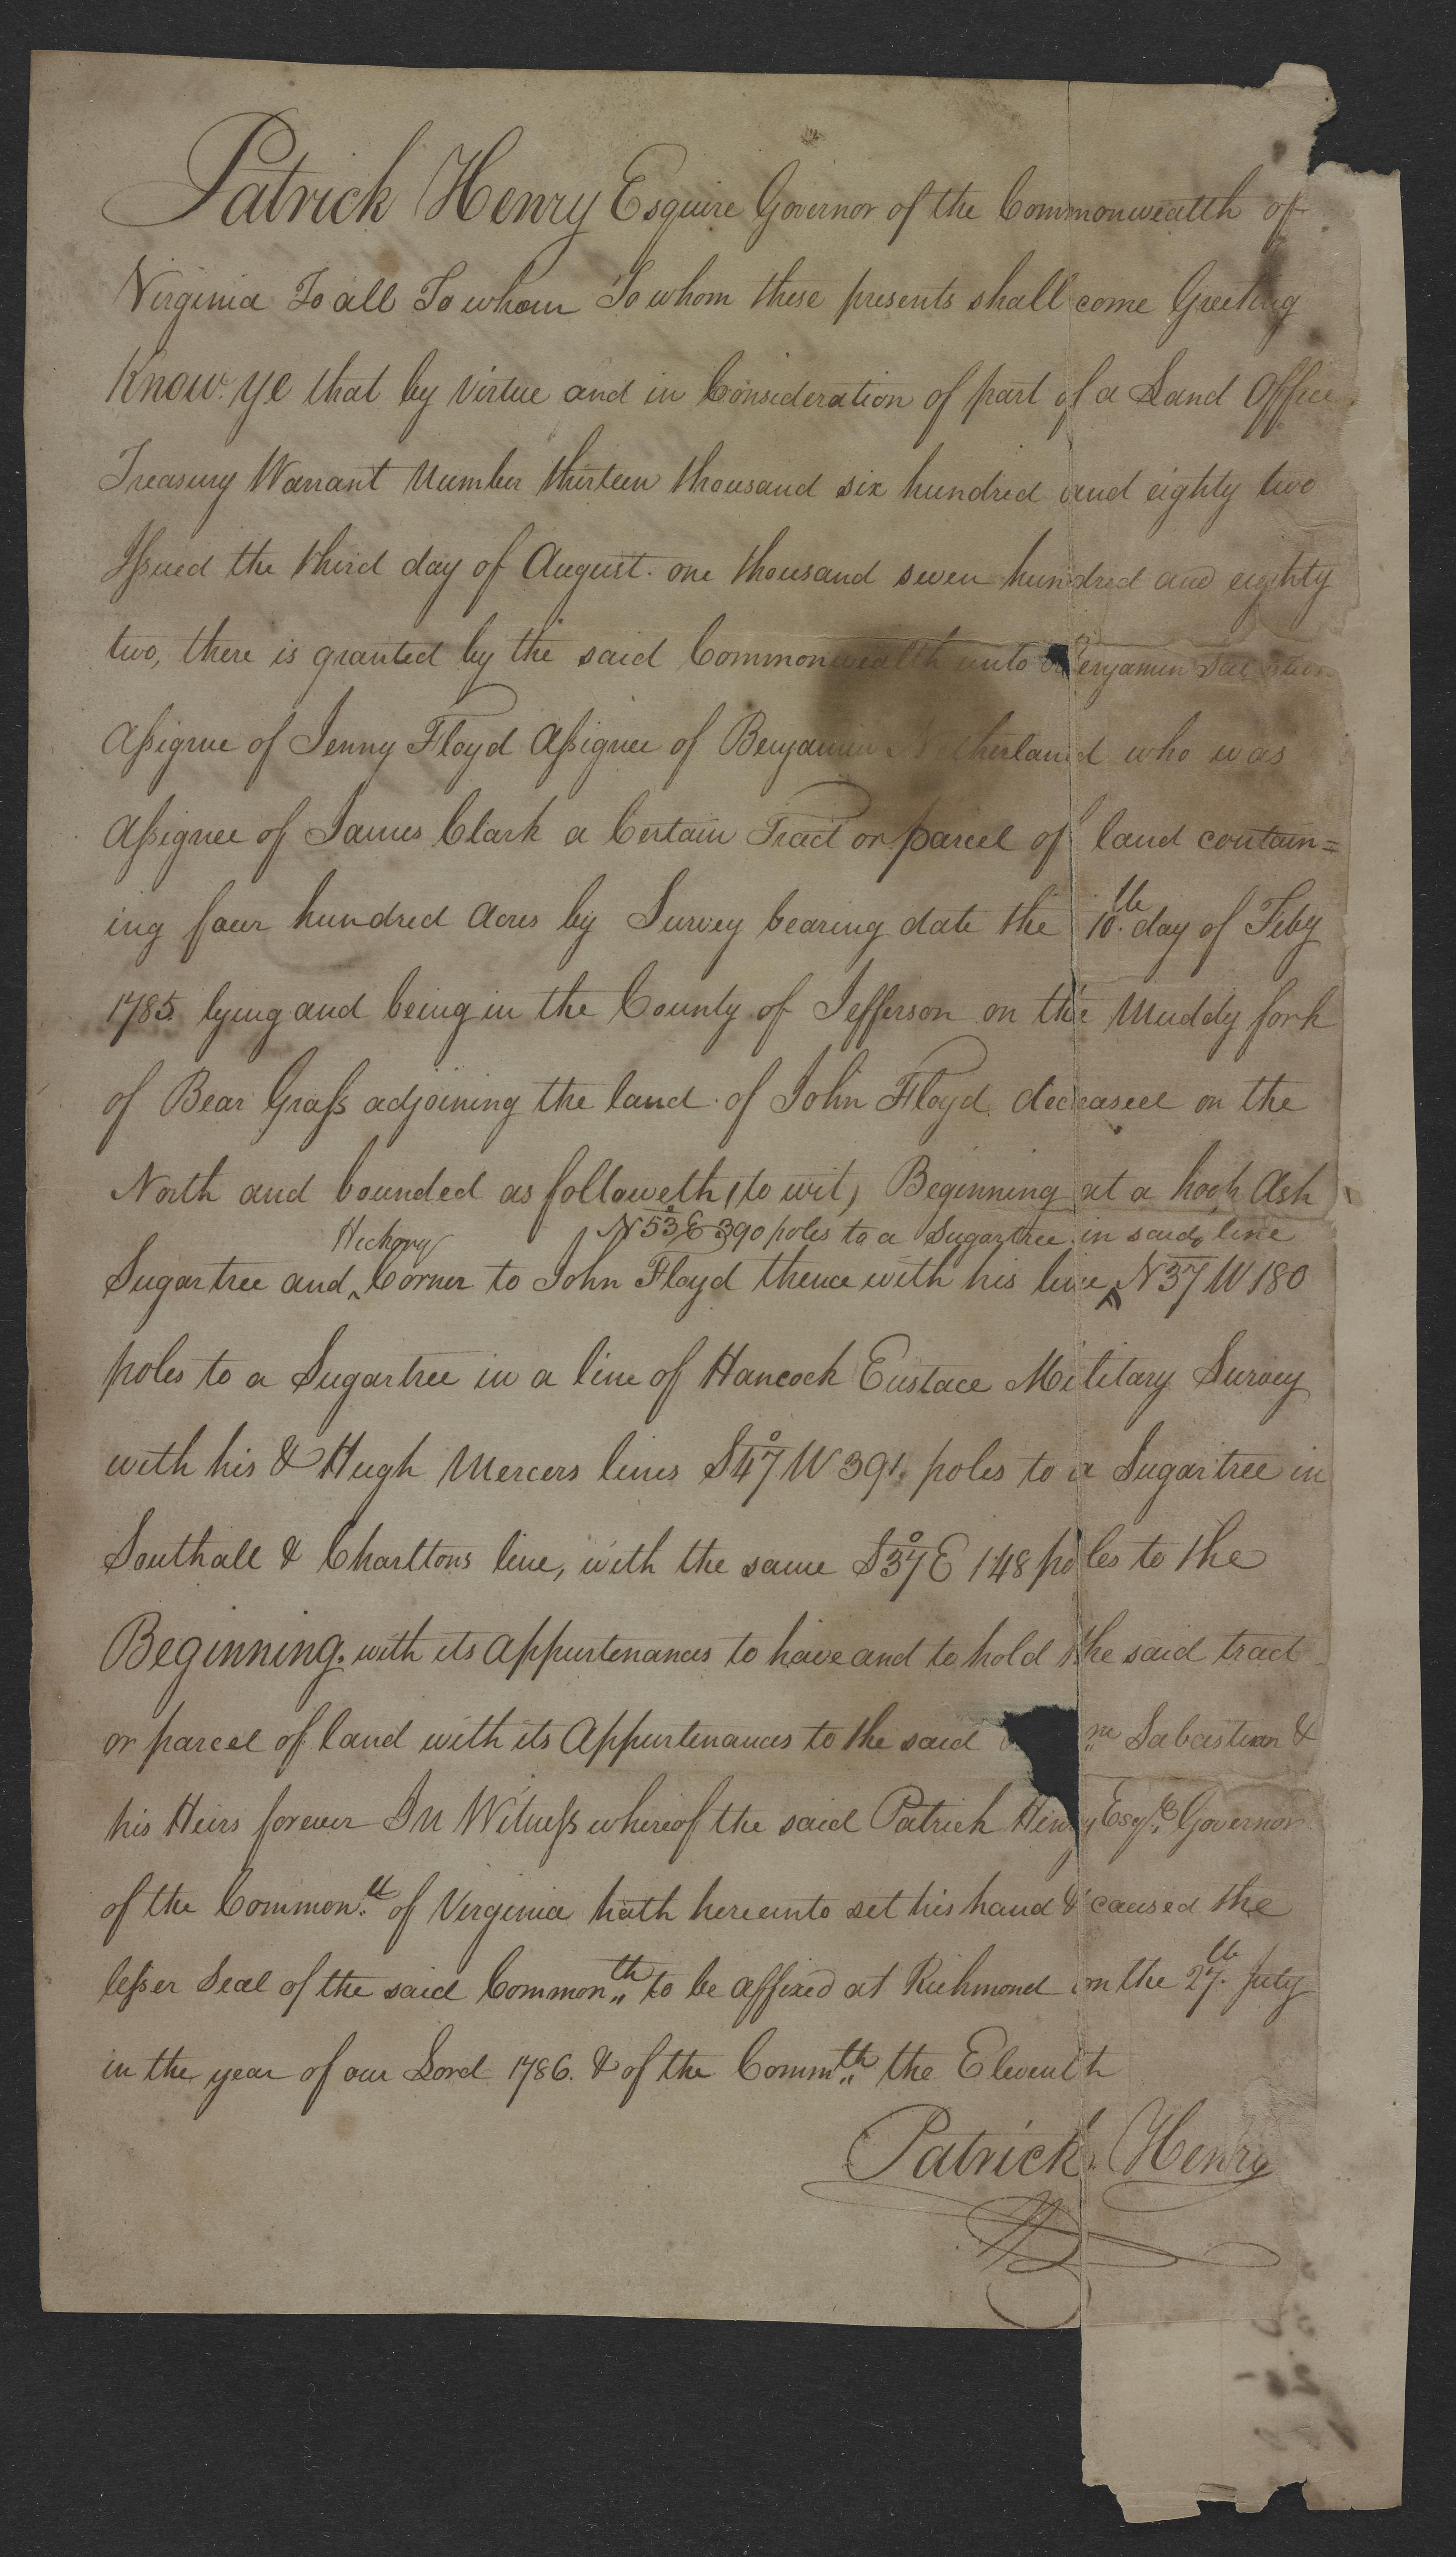 Patrick Henry Esquire Governor of the Commonwealth of
Virginia To all To whom To whom these presents shall come Greeting
Know ye that by virtue and in Consideration of part of a Land Office
Treasury Warrant Number thirteen thousand six hundred and eighty two
Issued the third day of August. one thousand seven hundred and eighty
two, there is granted by the said Commonwealth unto Benjamin
Assignee of Jenny Floyd Assignee of Benjamin Netherland who was
Assignee of James Clark a Certain Tract or parcel of land contain=
ing four hundred Acres by Survey bearing date the 10.th day of Feby
1785 lying and being in the County of Jefferson on the Muddy fork
of Bear Grass adjoining the land of John Floyd deceased on the
North and bounded as followeth (to wit) Beginning at a hoop Ash
Hickory N 53° E 390 poles to a Sugartree in said line
Sugartree and ^ Corner to John Floyd thence with his line ^ N 37 W 180
poles to a Sugartree in a line of Hancock Eustace Military Survey
with his & Hugh Mercers lines S 47° W 391. poles to a Sugartree in
Southall & Charltons line, with the same S 37° E 148 poles to the
Beginning. with its Appurtenances to have and to hold the said tract
or parcel of land with its Appurtenances to the said Sabastian &
his Heirs forever In Witness whereof the said Patrick Henry Esqr. Governor
of the Common.th of Virginia hath hereunto set his hand & caused the
lesser Seal of the said Common.th to be affixed at Richmond on the 27.th July
in the year of our Lord 1786. & of the Comm.th the Eleventh
Patrick Henry